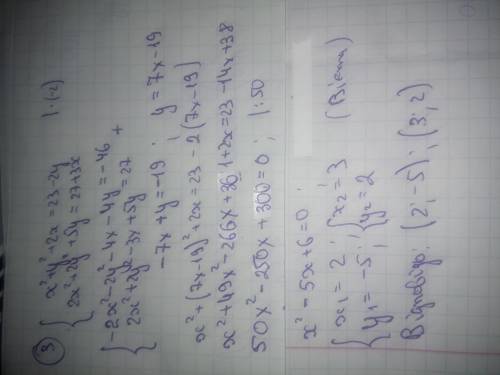 ③ { x²+y²+2x=23-2y |·(-2)
2x²+2y²+5y=27+3x
{ -2x²-2y²-4x-4y=-46 +
2x²+2y²-3x+5y=27
-7x+y=-19; y=7x-19
x²+(7x-19)²+2x=23-2(7x-19)
x²+49x²-266x+361+2x=23-14x+38
50x²-250x+300=0; |:50
x²-5x+6=0;
{ x₁=2; { x₂=3 (Вієта)
y₁=-5; y₂=2
Відповідь: (2;-5); (3;2)